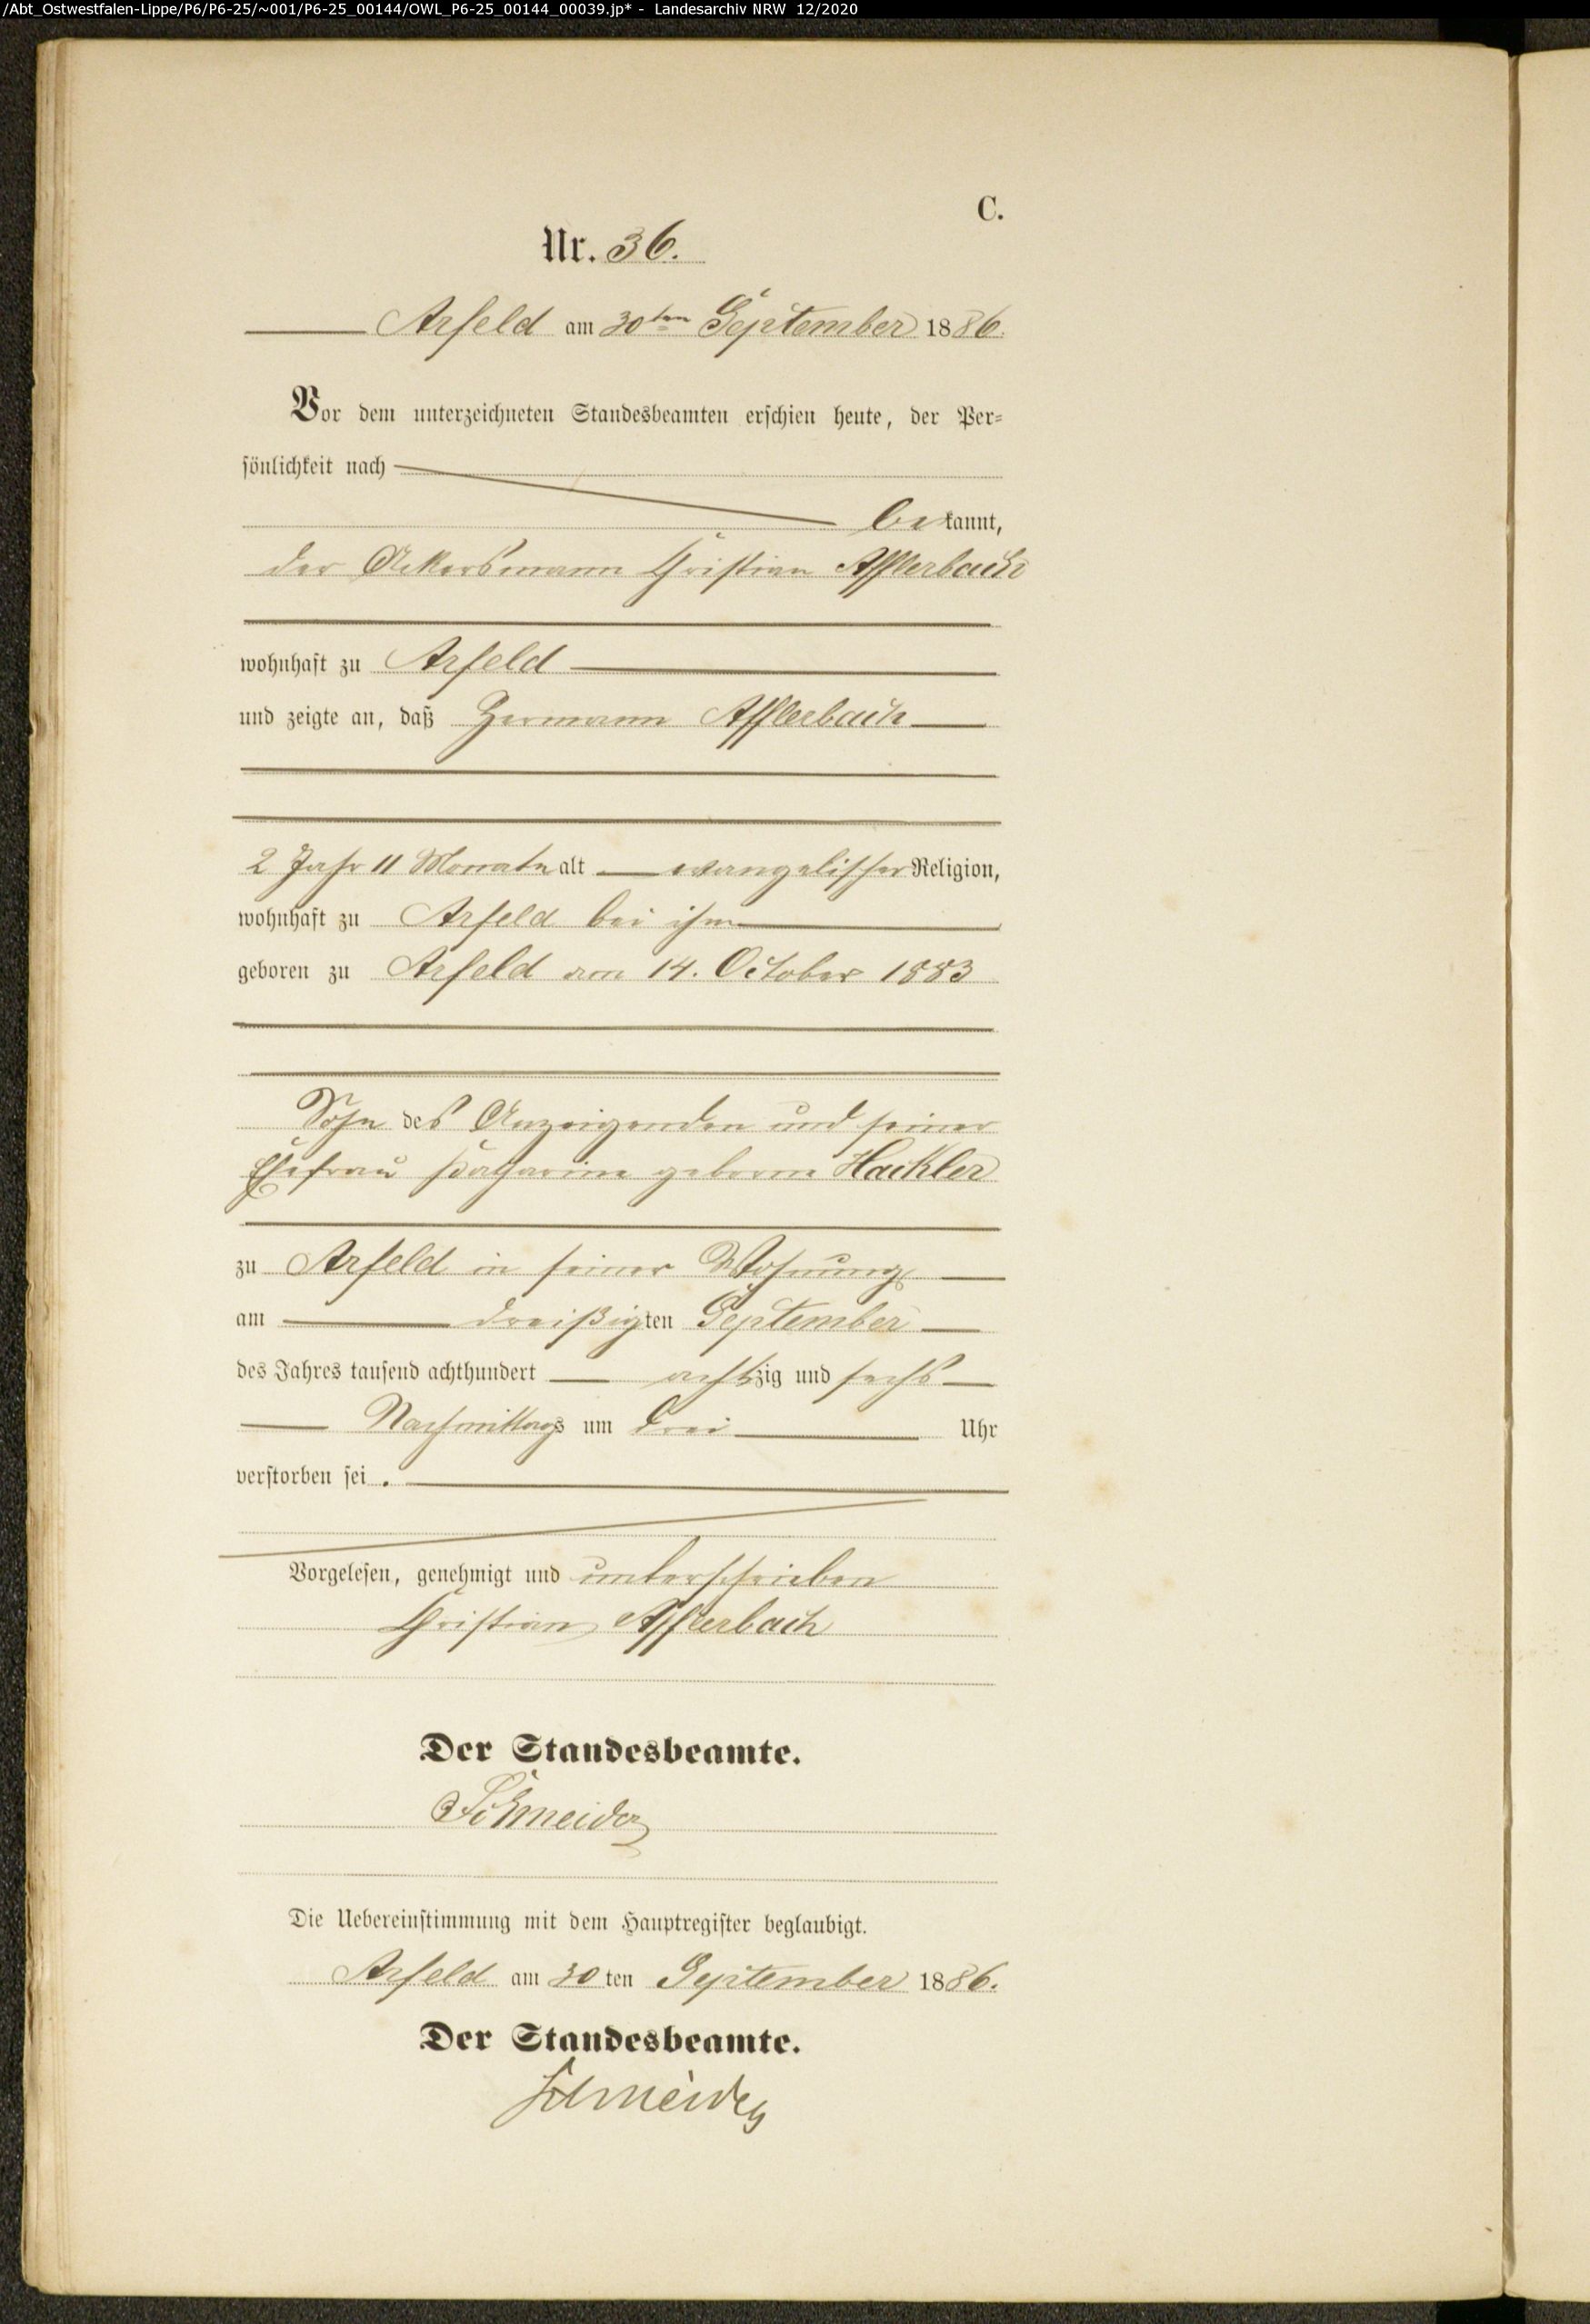 /Abt_Ostwestfalen-Lippe/P6/P6-25/~001/P6-25_00144/OWL_P6-25_00144_00039.jp* - Landesarchiv NRW 12/2020
C.
Nr. 36.
Arfeld am 30ten September 1886.
Vor dem unterzeichneten Standesbeamten erschien heute, der Per-
sönlichkeit nach
bekannt,
der Ackersmann Christian Afflerbach
wohnhaft zu Arfeld
und zeigte an, daß Hermann Afflerbach
2 Jahr 11 Monate alt evangelischer Religion,
wohnhaft zu Arfeld bei ihm
geboren zu Arfeld am 14. October 1883
Sohn des Anzeigenden und seiner
Ehefrau Katharine geborne Hackler
zu Arfeld in seiner Wohnung
am dreißigten September
des Jahres tausend achthundert achtzig und sechs
Nachmittags um drei Uhr
verstorben sei.
Vorgelesen, genehmigt und unterschrieben
Christian Afflerbach
Der Standesbeamte.
Schneider
Die Uebereinstimmung mit dem Hauptregister beglaubigt.
Arfeld am 30ten September 1886.
Der Standesbeamte.
Schneider